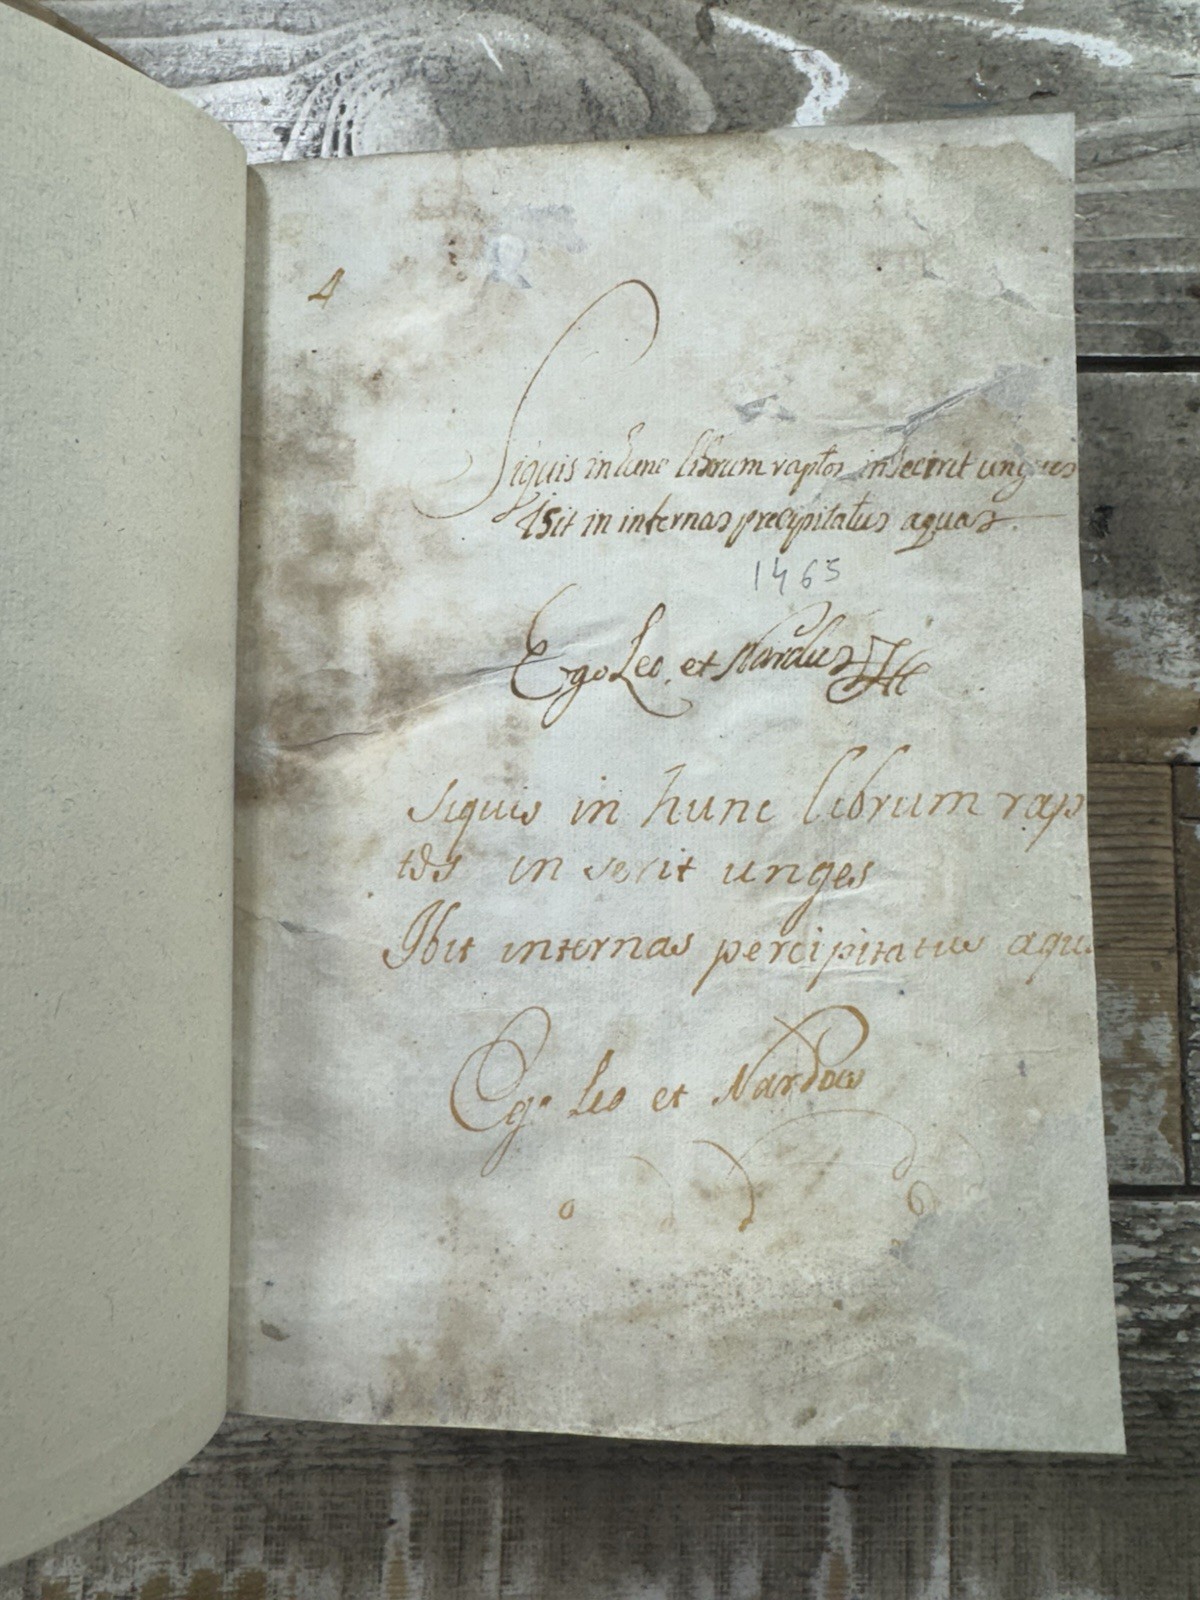 4
Siquis in hunc librum raptor inseerit ungues
ibit in internas precipitatus aquas.
1465
Ego Leo, et Nardus
siquis in hunc librum rap
tos in serit unges
Ibit internas percipitatus aqu
Ego Leo et Nardus